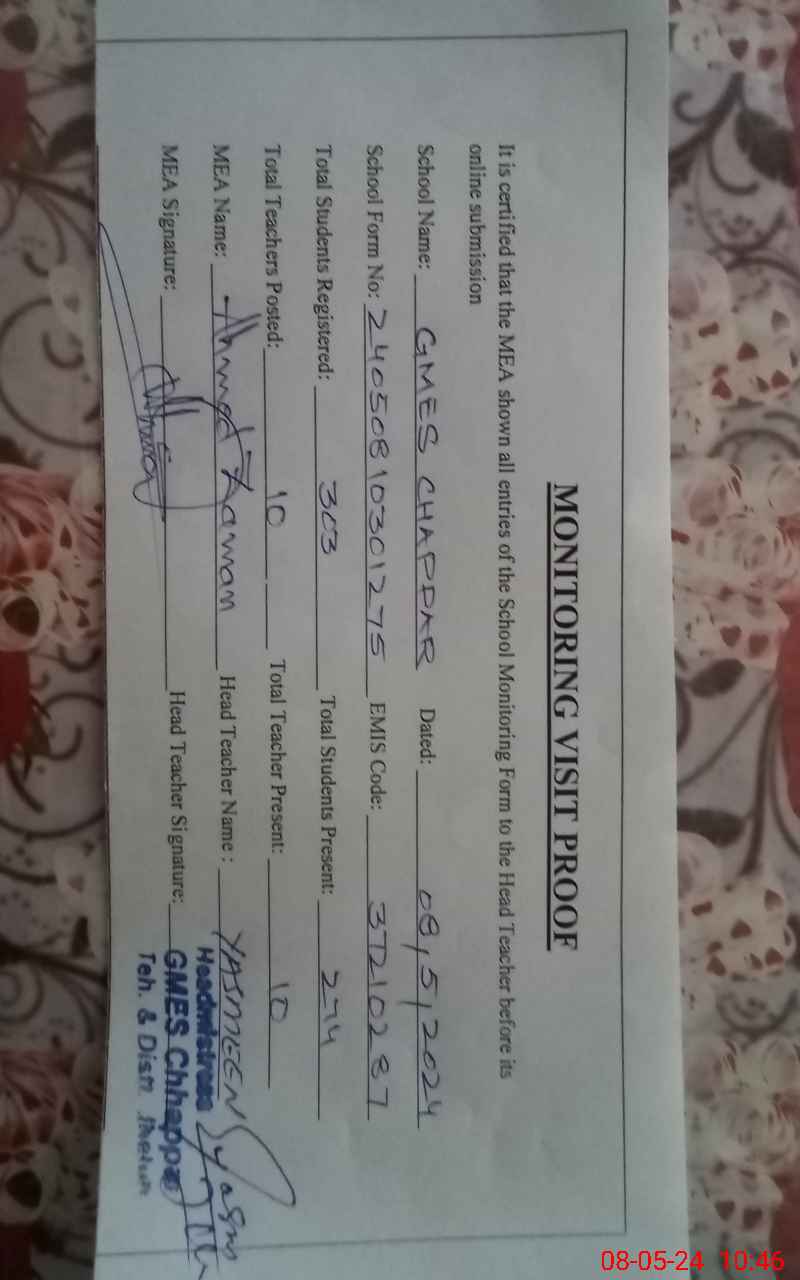 MONITORING VISIT PROOF
It is certified that the MEA shown all entries of the School Monitoring Form to the Head Teacher before its
online submission
School Name: GMES CHAPPAR Dated: 08,5,2024
School Form No: 2405081030 1275 EMIS Code: 37210287
Total Students Registered: 303 Total Students Present: 274
Total Teachers Posted: 10 Total Teacher Present: 10
MEA Name: Ahmed Zaman Head Teacher Name : YASMEEN
MEA Signature: Head Teacher Signature:
Headmistress
GMES Chhappar
Teh. & Distt. Jhelum
08-05-24 10:46